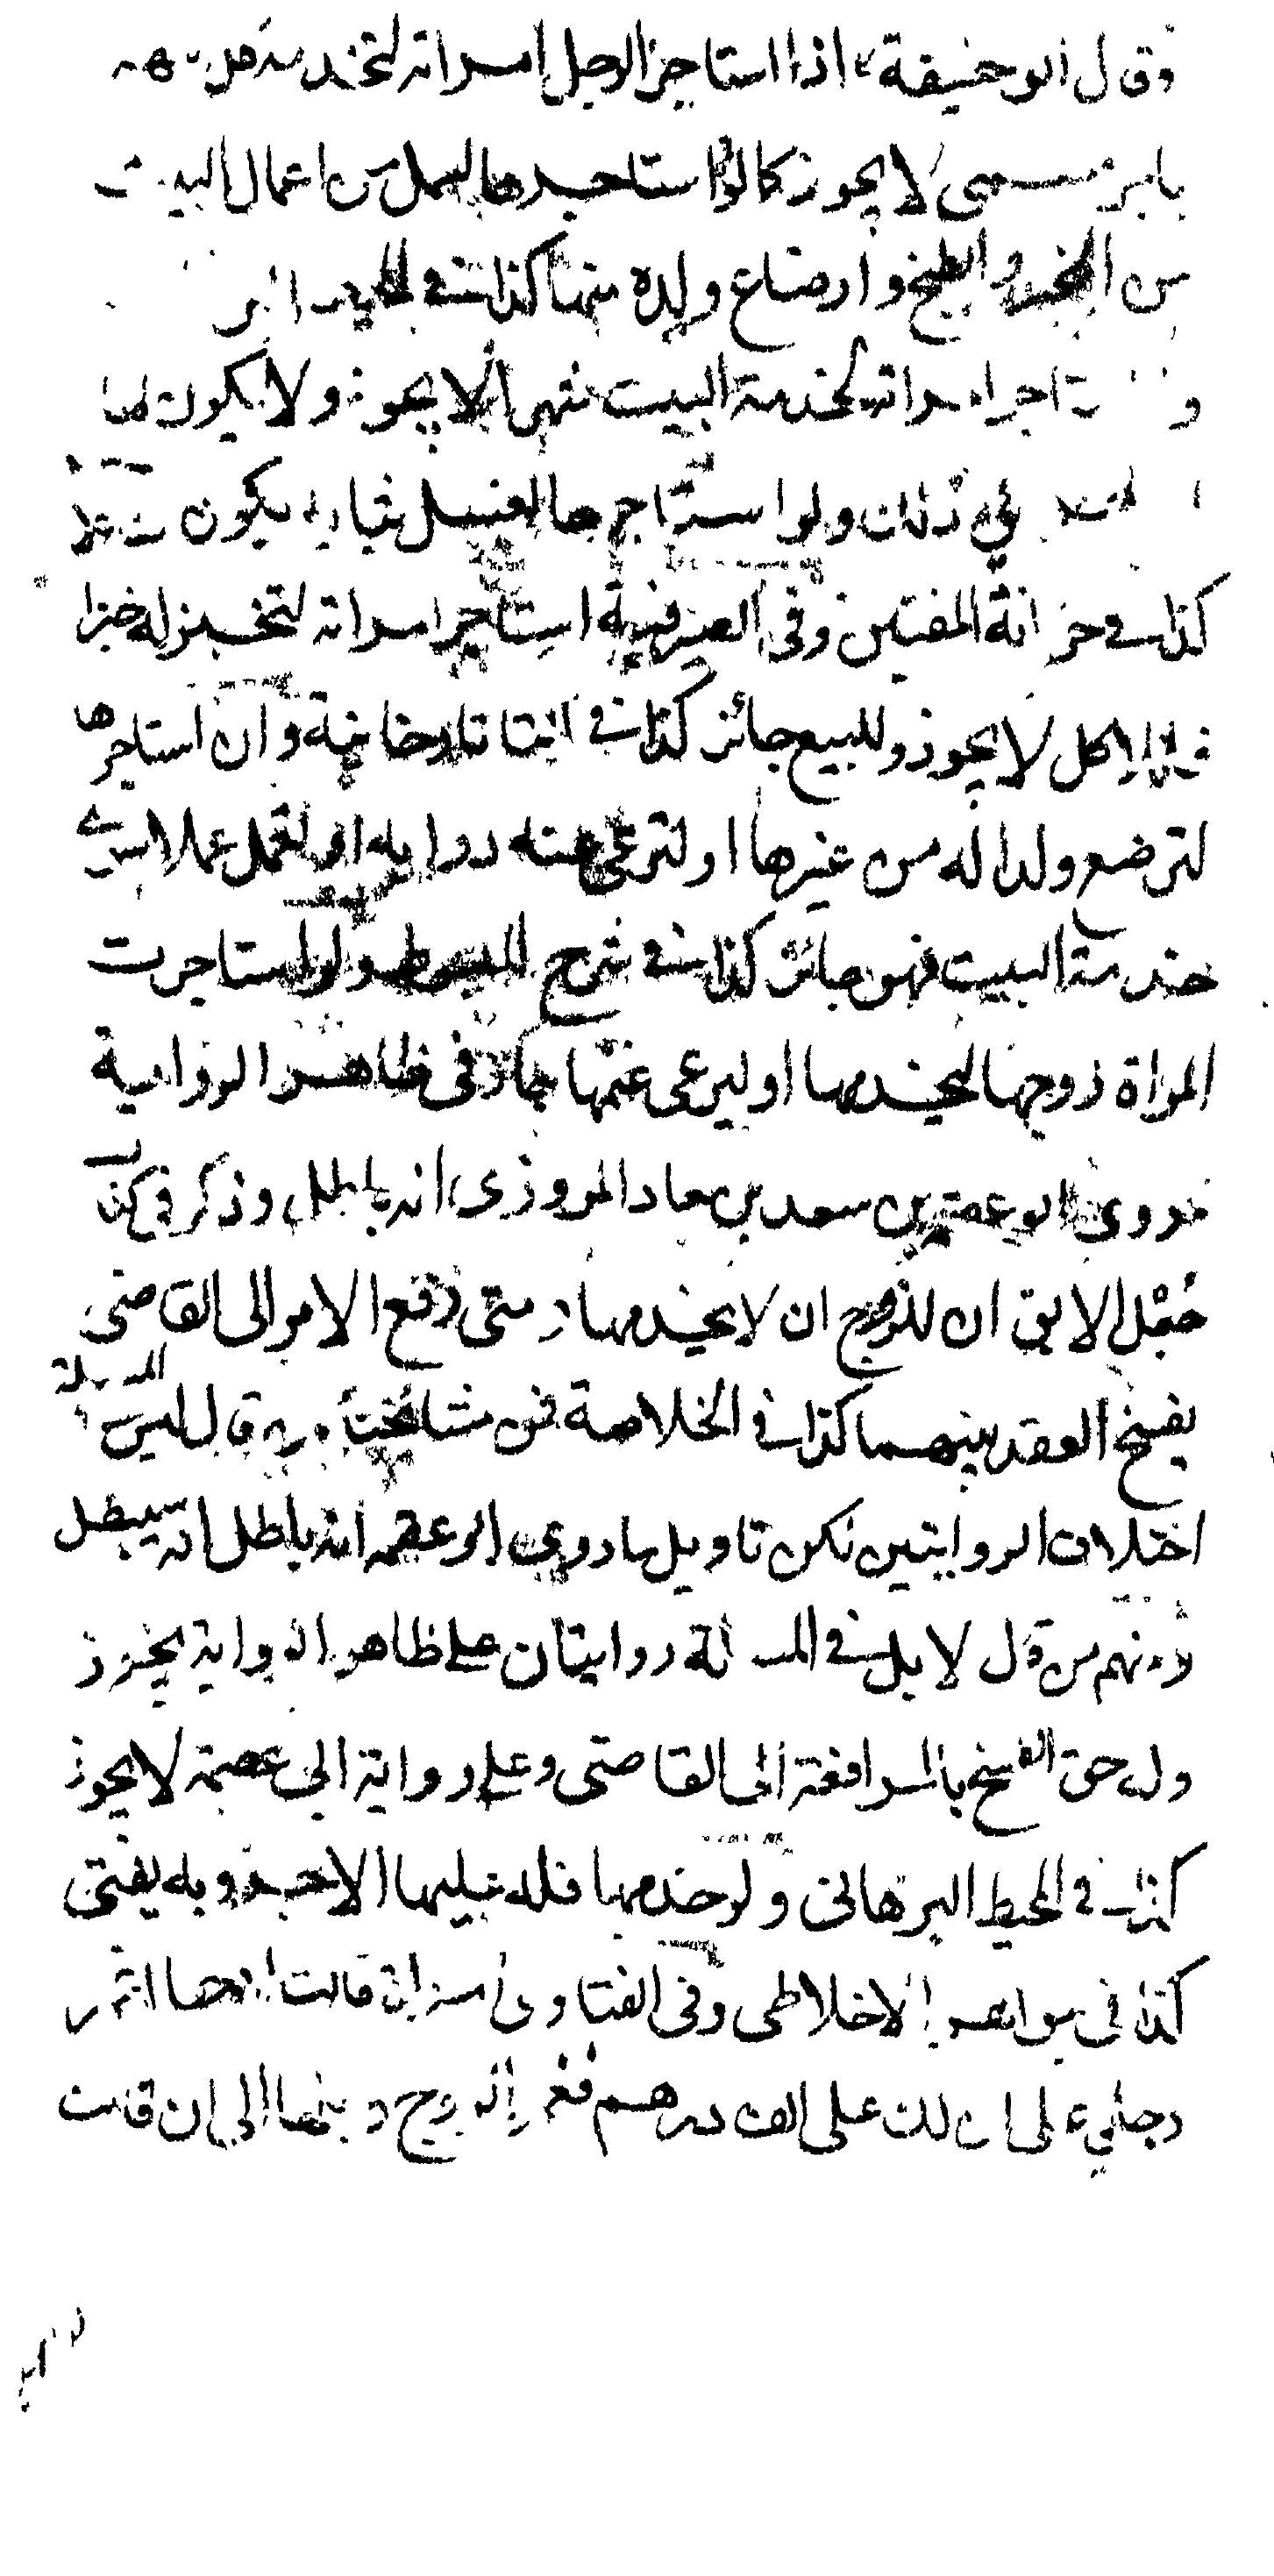 وقال ابو حنيفة اذا استاجر الرجل امراته لتخدمه كل شهر
باجر مسمى لا يجوز كما لو استاجرها لعمل من اعمال البيت
من الخبز والطبخ وارضاع ولده منها كذا في
استاجر امراته لخدمة البيت شهرا لا يجوز ولا يكون لها
في ذلك ولو استاجرها لغسل ثيابه يكون
كذا في خزانة المفتين وفى الصيرفية استاجر امراته لتخبز له خبزا
للاكل لا يجوز وللبيع جائز كذا في التتارخانية وان استاجرها
لترضع ولدا له من غيرها او لترعى غنمه ودوابه او لتعمل عملا سوى
خدمة البيت فهو جائز كذا في شرح المبسوط ولو استاجرت
المراة زوجها ليخدمها او ليرعى غنمها جاز فى ظاهر الرواية
وروى ابو عصمة بن سعد بن معاد المروزى انه باطل وذكر فى كتاب
جعل الابق ان للزوج ان لا يخدمها ومتى رفع الامر الى القاضى
يفسخ العقد بينهما كذا في الخلاصة فمن مشائخنا من قال ليس في المسئلة
اختلاف الروايتين لكن تاويل ما روى ابو عصمه انه باطل انه سيبطل
ومنهم من قال لا بل في المسئلة روايتان على ظاهر الرواية يجوز
وله حق الفسخ بالمرافعة الى القاضى وعلى رواية ابي عصمة لا يجوز
كذا في المحيط البرهانى ولو خدمها فله عليها الاجر وبه يفتى
كذا فى جواهر الاخلاطى وفى الفتاوى امراة قالت لزوجها اغمز
رجلي على ان لك على الف درهم فغمز الزوج رجلها الى ان قالت